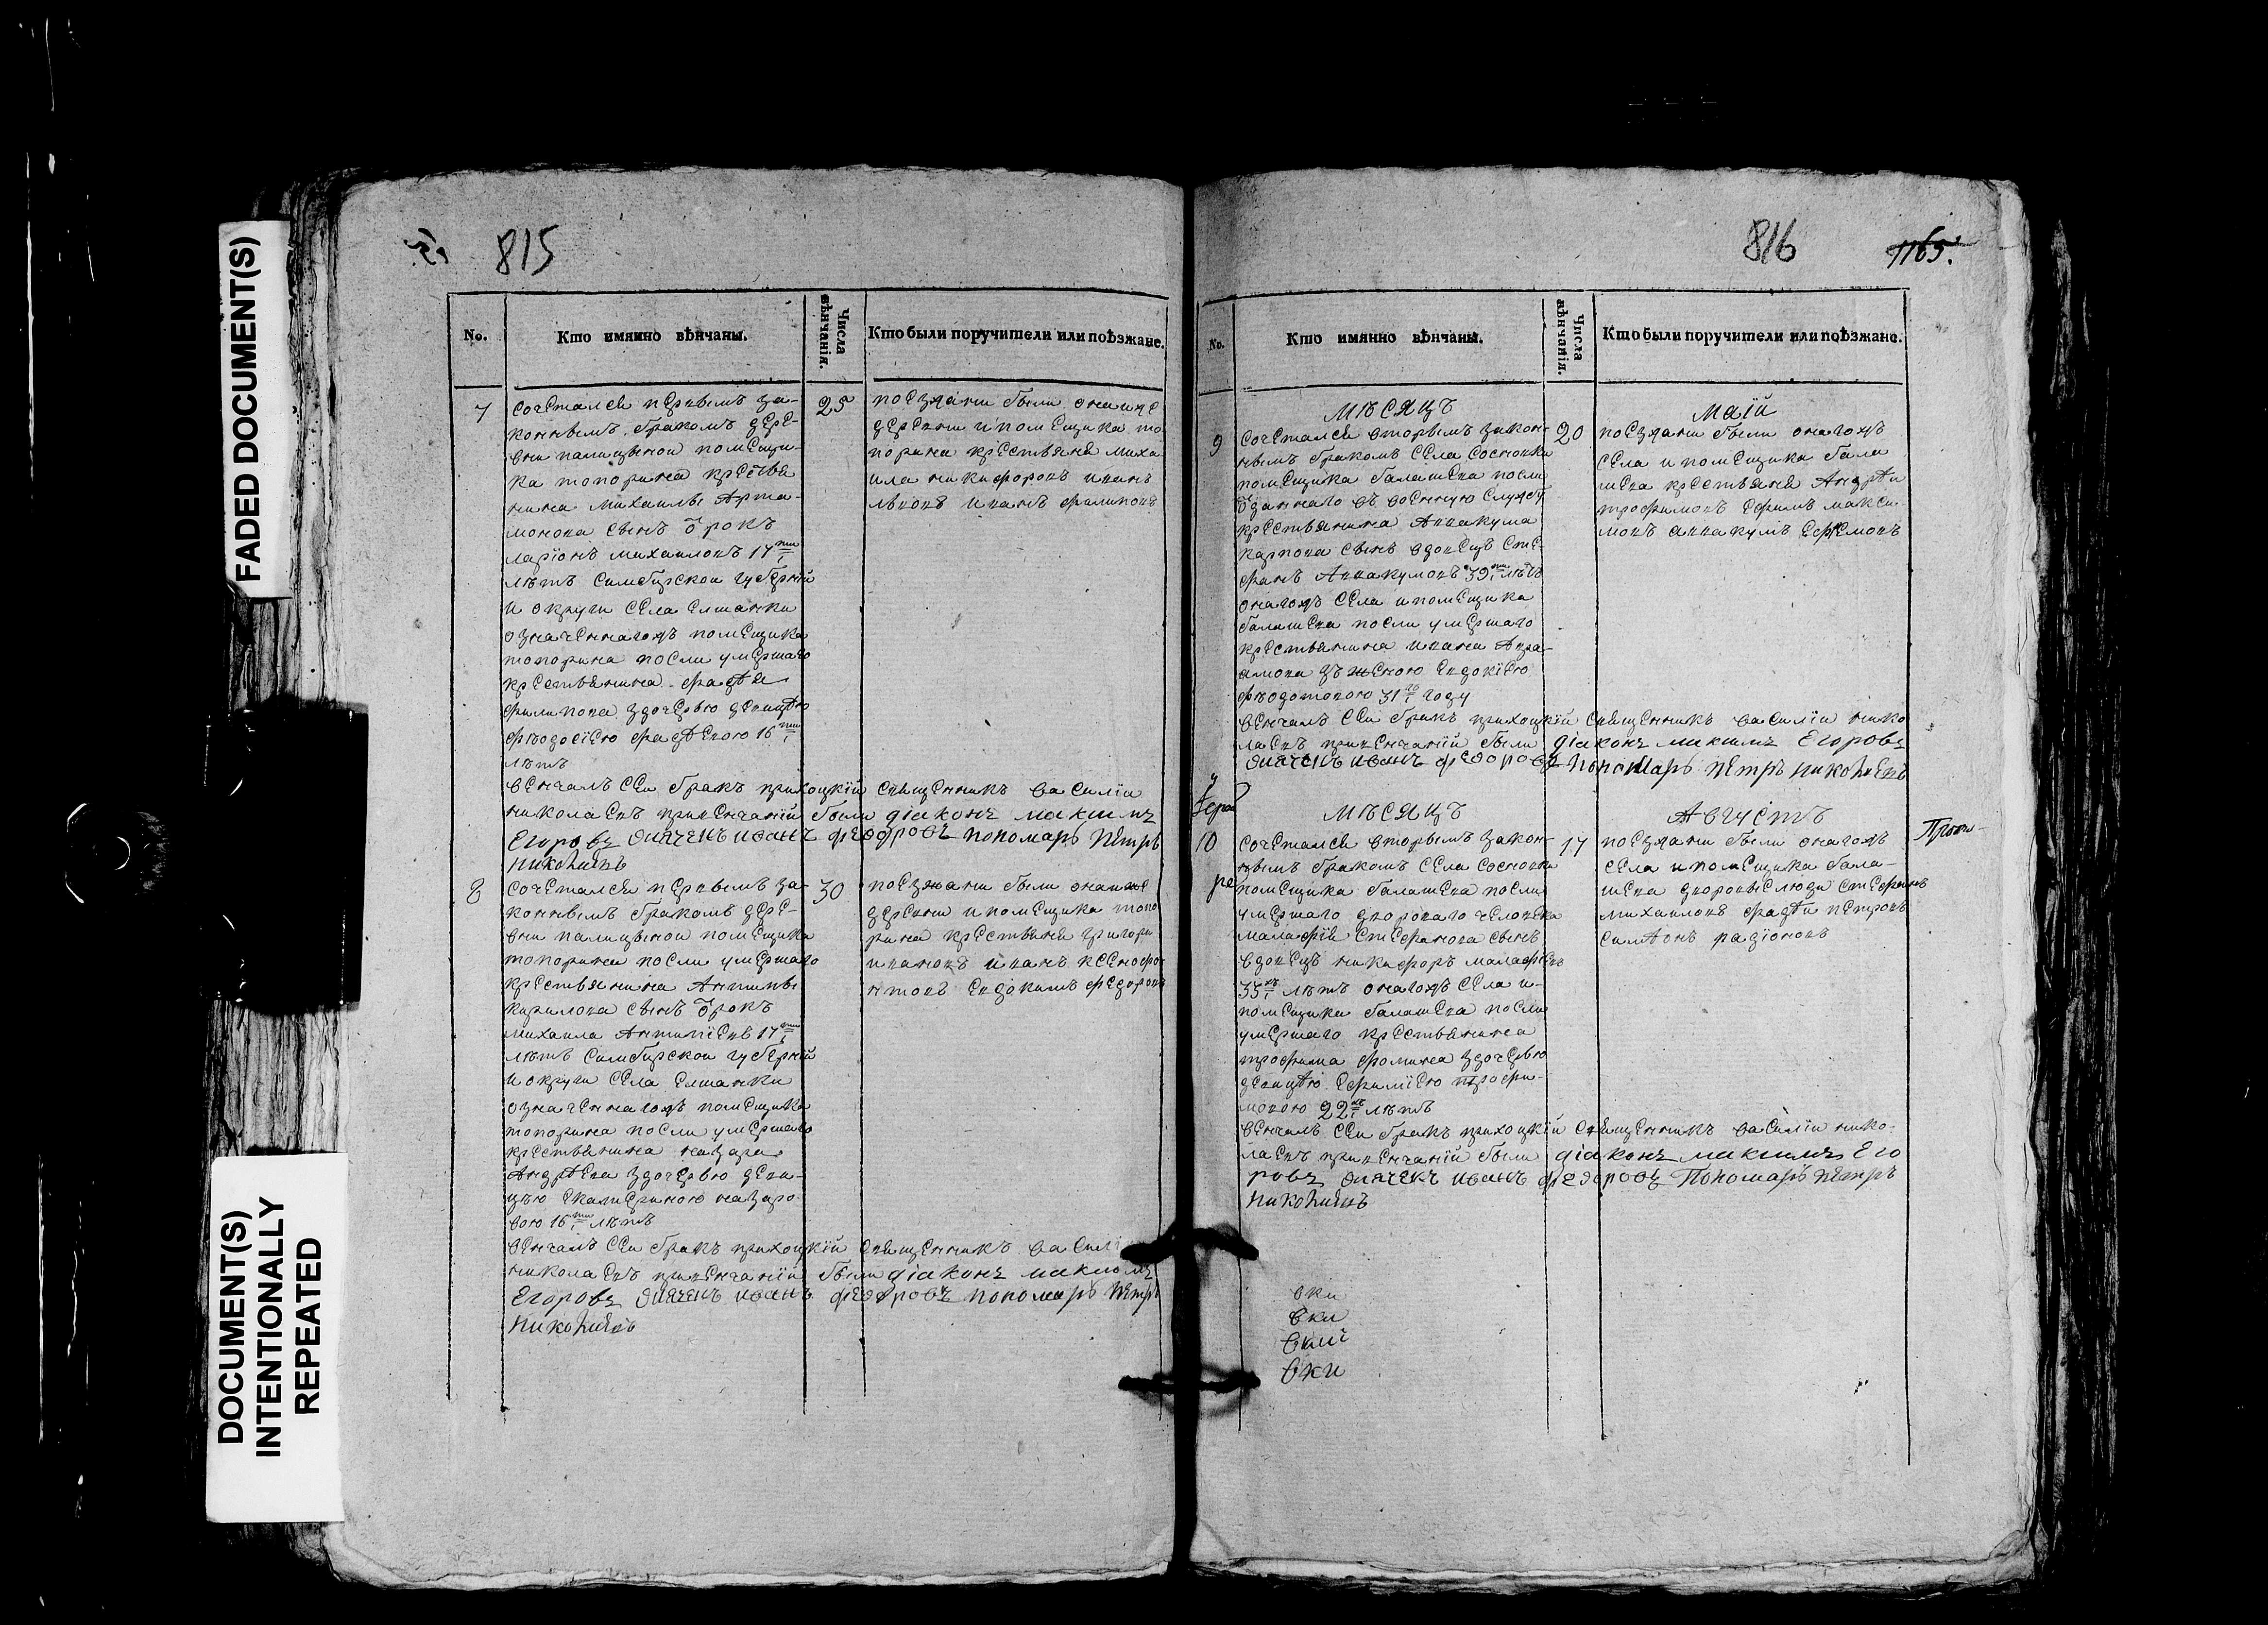 FADED DOCUMENT(S)
DOCUMENT(S)
INTENTIONALLY
REPEATED
815
No.
Кто имянно вѣнчаны.
Числа вѣнчанія.
Кто были поручители или поѣзжане.
7
сочетался первымъ за-
коннымъ бракомъ дере-
вни палицыной помещи-
ка топорина крестья
нина михаилы Арта-
монова сынъ отрокъ
ларіонъ михаиловъ 17ти
лѣтъ симбирской губернїй
и округи села елшанки
означеннагожъ помещика
топорина посли умершаго
крестьянина фадѣя
филипова здочерью девицѣю
фѣодосіею фадѣевою 16ти
лѣтъ
25
поезжани были онаиже
деревни и помещика то
порина крестьяня миха
ила никифоровъ иванъ
львовъ иванъ филиповъ
венчалъ сеи бракъ прихоцкїй священникъ василіи
николаевъ привенчанїй были діаконъ макимъ
Егоровъ дияченъ иванъ федоровъ пономарь петръ
николаевъ
8
сочетался первымъ за-
коннымъ бракомъ дере-
вни палицыной помещика
топорина посли умершаго
крестьянина Антипы
кирилова сынъ отрокъ
михаила Антипіевъ 17ти
лѣтъ симбирской губернїй
и округи села елшанки
означеннагожъ помещика
топорина посли умершаго
крестьянина назара
Андрѣева здочерью деви-
цью екатериною назаро
вою 16ти лѣтъ
30
поезжани были онаиже
деревни и помещика топо
рина крестьяня григори
ивановъ иванъ ксенофо
нтовъ евдокимъ федоровъ
венчалъ сеи бракъ прихоцкїй священникъ васили
николаевъ привенчанїй были діаконъ максимъ
Егоровъ дияченъ иванъ федоровъ пономарь петръ
николаевъ
816
1165.
No.
Кто имянно вѣнчаны.
Числа вѣнчанія.
Кто были поручители или поѣзжане.
мѣсяцъ
маїй
9
сочетался вторымъ закон-
нымъ бракомъ села сосновки
помещика балашева посли
отданнаго въ военную службу
крестьянина Аввакума
карпова сынъ вдовецъ сте-
фанъ Аввакумовъ 39ти лѣтъ
онагожъ села и помещика
балашева посли умершаго
крестьянина ивана Авра-
амова зъ женою евдокіею
фѣодотовою 31го году
20
поезжани были онагожъ
села и помещика бала
шева крестьяня Андрѣи
трофимовъ ефимъ макси
мовъ аввакумъ ефремовъ
венчалъ сеи бракъ прихоцкїй священникъ василіи нико
лаевъ привенчанїй были діаконъ макимъ Егоровъ
дияченъ иванъ федоровъ пономарь петръ николаевъ
мѣсяцъ
Августъ
10
сочетался вторымъ закон-
нымъ бракомъ села сосновки
помещика балашева посли
умершаго двороваго человека
малафія стефанова сынъ
вдовецъ никифоръ малафіевъ
35хъ лѣтъ онагожъ села и
помещика балашева посли
умершаго крестьянина
трофима фомина здочерью
девицѣю ефиміею трофи-
мовою 22хъ лѣтъ
17
поезжани были онагожъ
села и помещика бала-
шева дворовые люди стефанъ
михаиловъ фадѣи петровъ
симѣонъ радіоновъ
венчалъ сеи бракъ прихоцкїй священникъ василіи нико-
лаевъ привенчанїй были діаконъ максимъ Его
ровъ дияченъ иванъ федоровъ Пономарь петръ
николаевъ